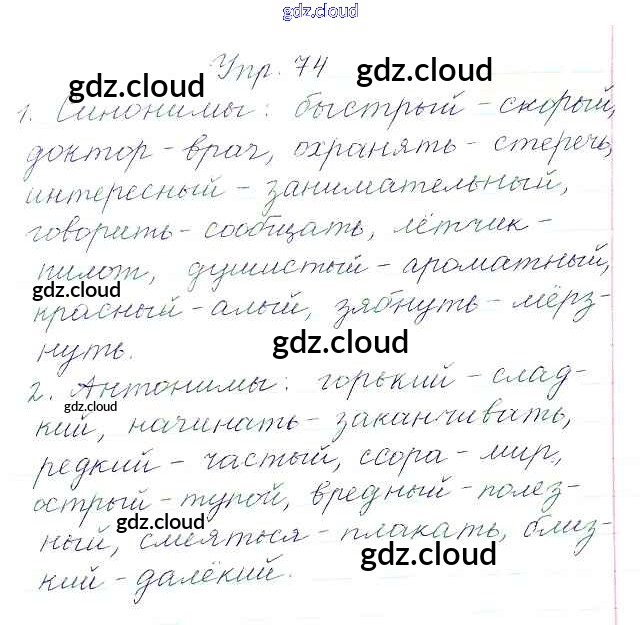 gdz.cloud
Упр. 74
gdz.cloud
gdz.cloud
1. Синонимы: быстрый - скорый,
доктор - врач, охранять - стеречь,
интересный - занимательный,
говорить - сообщать, лётчик -
пилот, душистый - ароматный,
gdz.cloud
красный - алый, зябнуть - мёрз-
нуть.
gdz.cloud
2. Антонимы: горький - слад-
gdz.cloud
кий, начинать - заканчивать,
редкий - частый, ссора - мир,
острый - тупой, вредный - полез-
gdz.cloud
ный, смеяться - плакать, близ-
gdz.cloud
кий - далёкий.